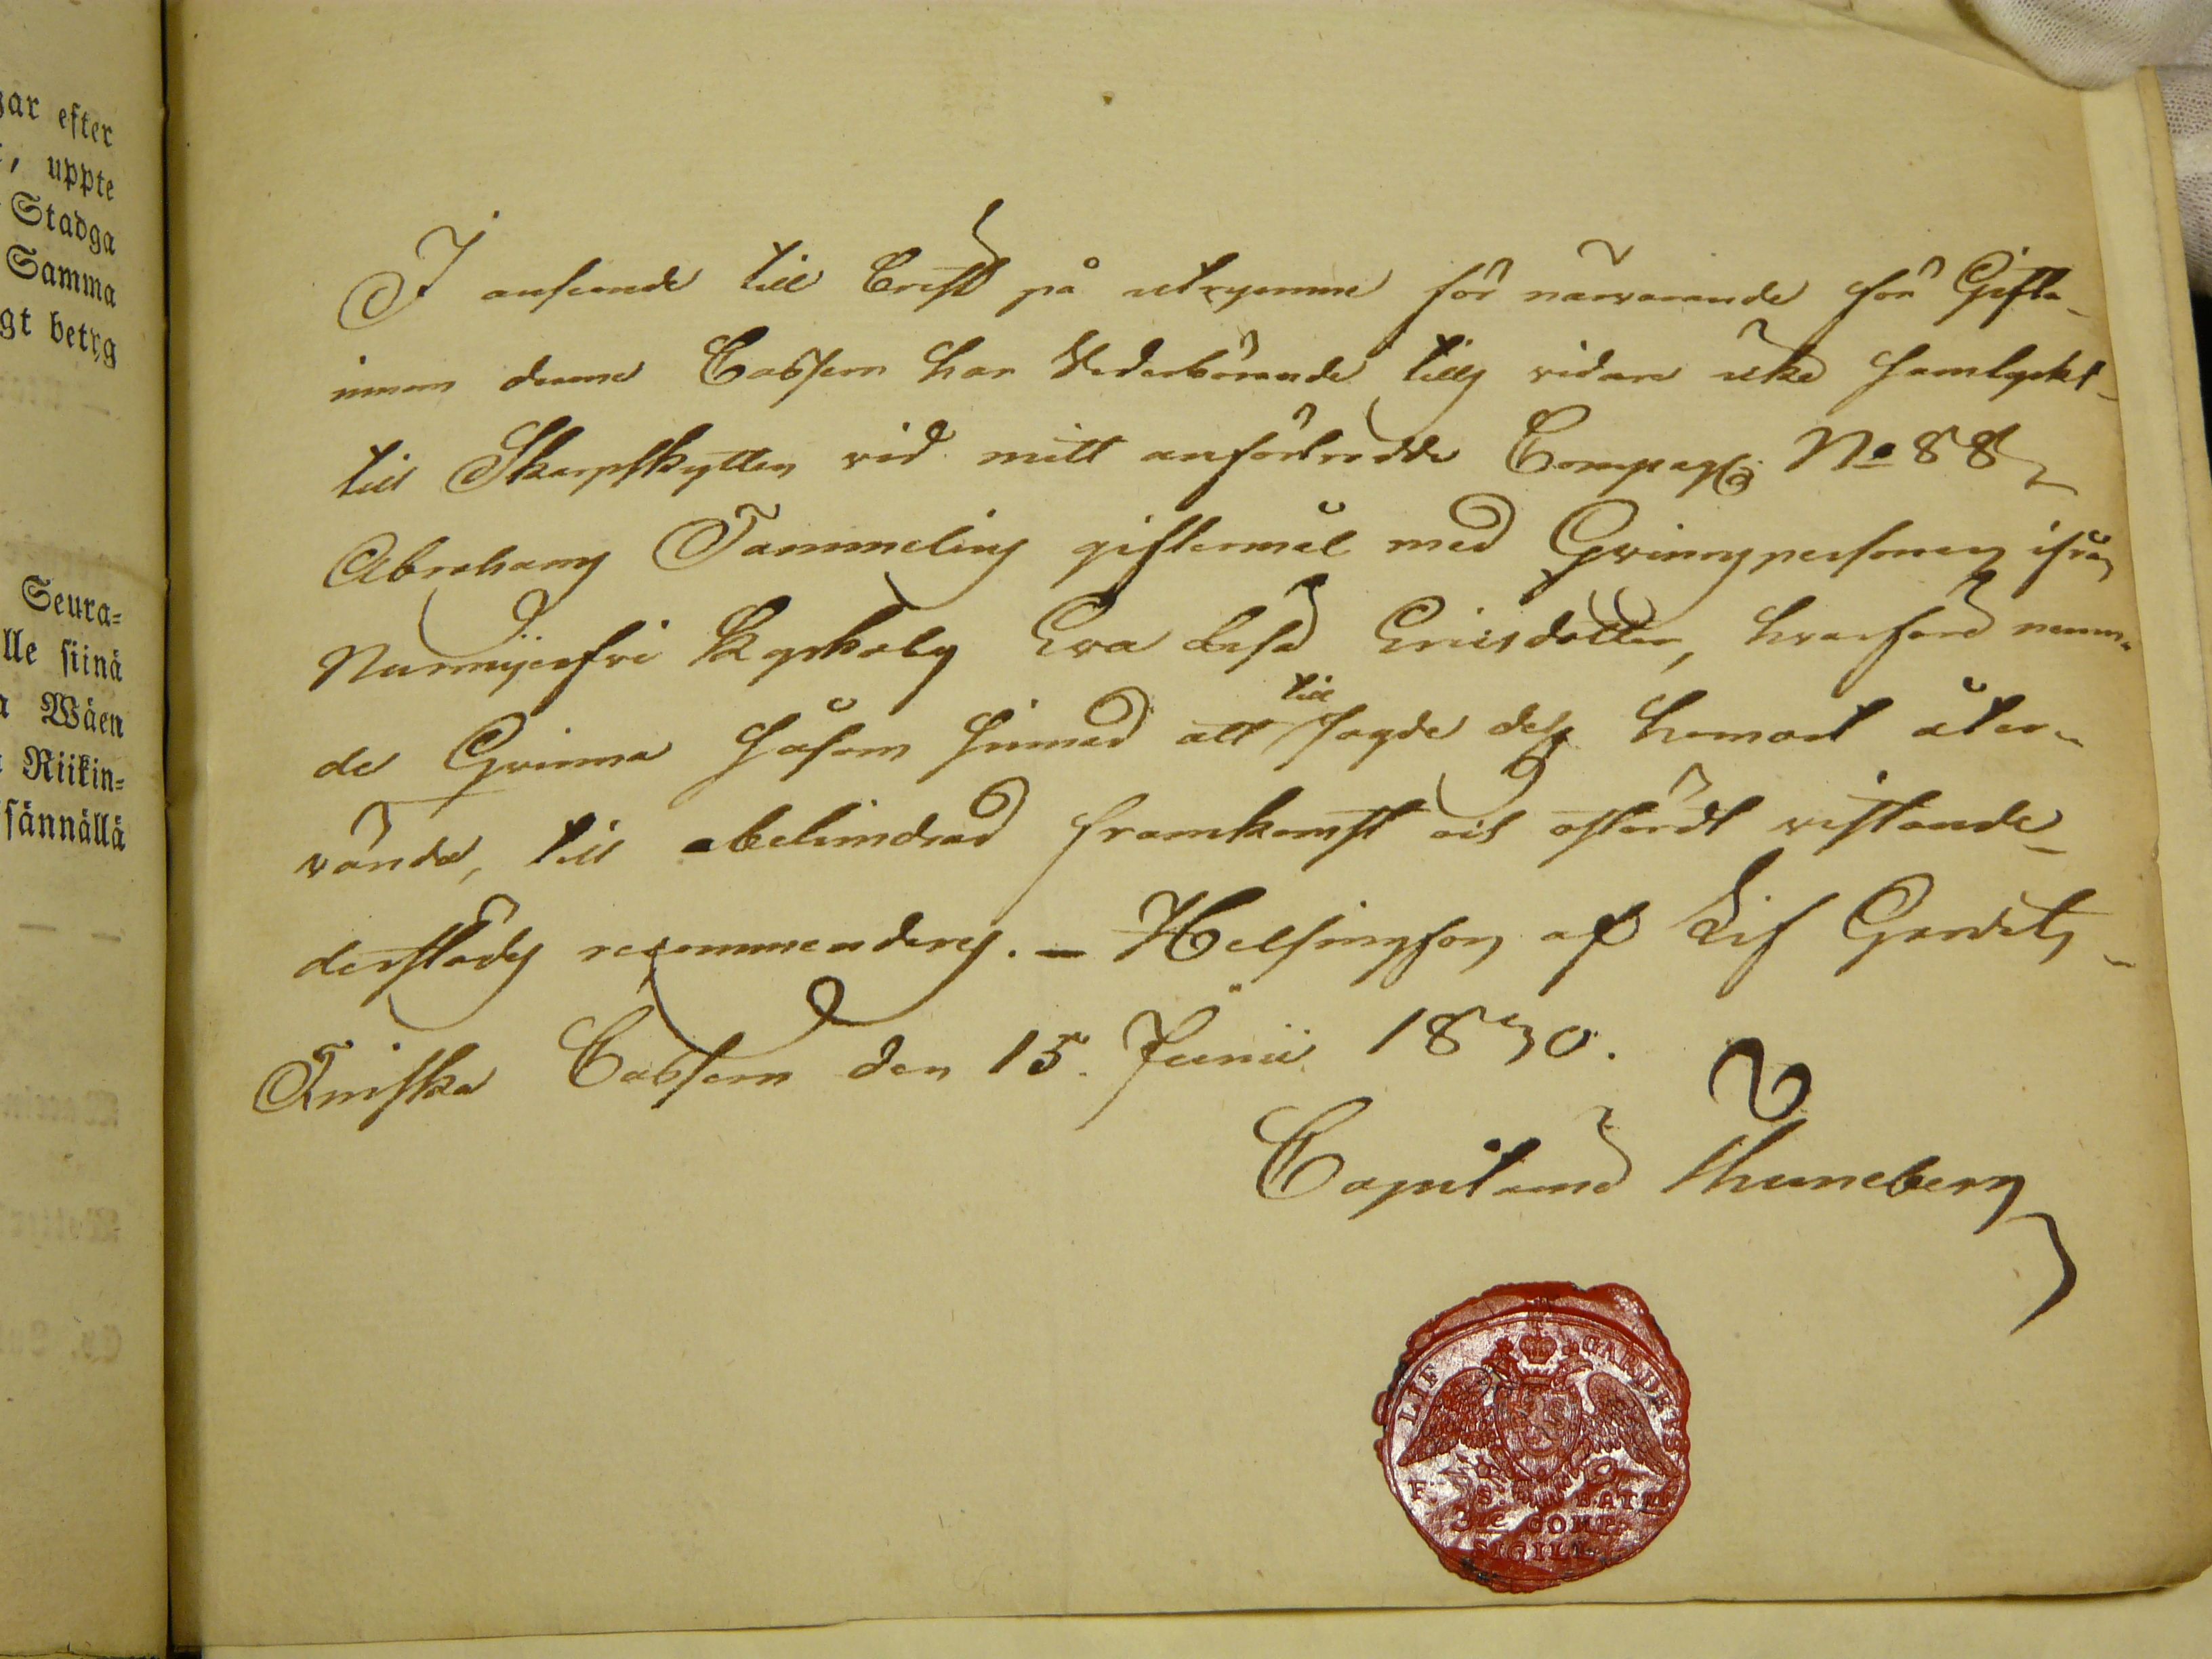 gar efter
, uppte
Stadga
Samma
gt betyg
Seura-
lle siinä
a Wäen
Riikin-
sännällä
I anseende till brist på utrymme för närvarande för Gifta
innom denna Casern har Vederbörande tills vidare icke samtyckt
till Skarpskytten vid mitt anförtrodde Compagnie No 88
Abraham Tammelins giftermål med Qvinnspersonen ifrån
Nurmijerfvi Kyrkoby Eva Lisa Ericsdotter, hvarföre nämn-
de Qvinna såsom sinnad att till sagde dess hemort åter-
vända, till obehindrad framkomst och ostördt vistande
derstädes recommenderas. - Helsingfors af Lif Gardets
Finska Casern den 15. Junii 1830.
Capitaine Thuneberg
LIF GARDETS
F. S. BATNS
3DE COMP.
SIGILL